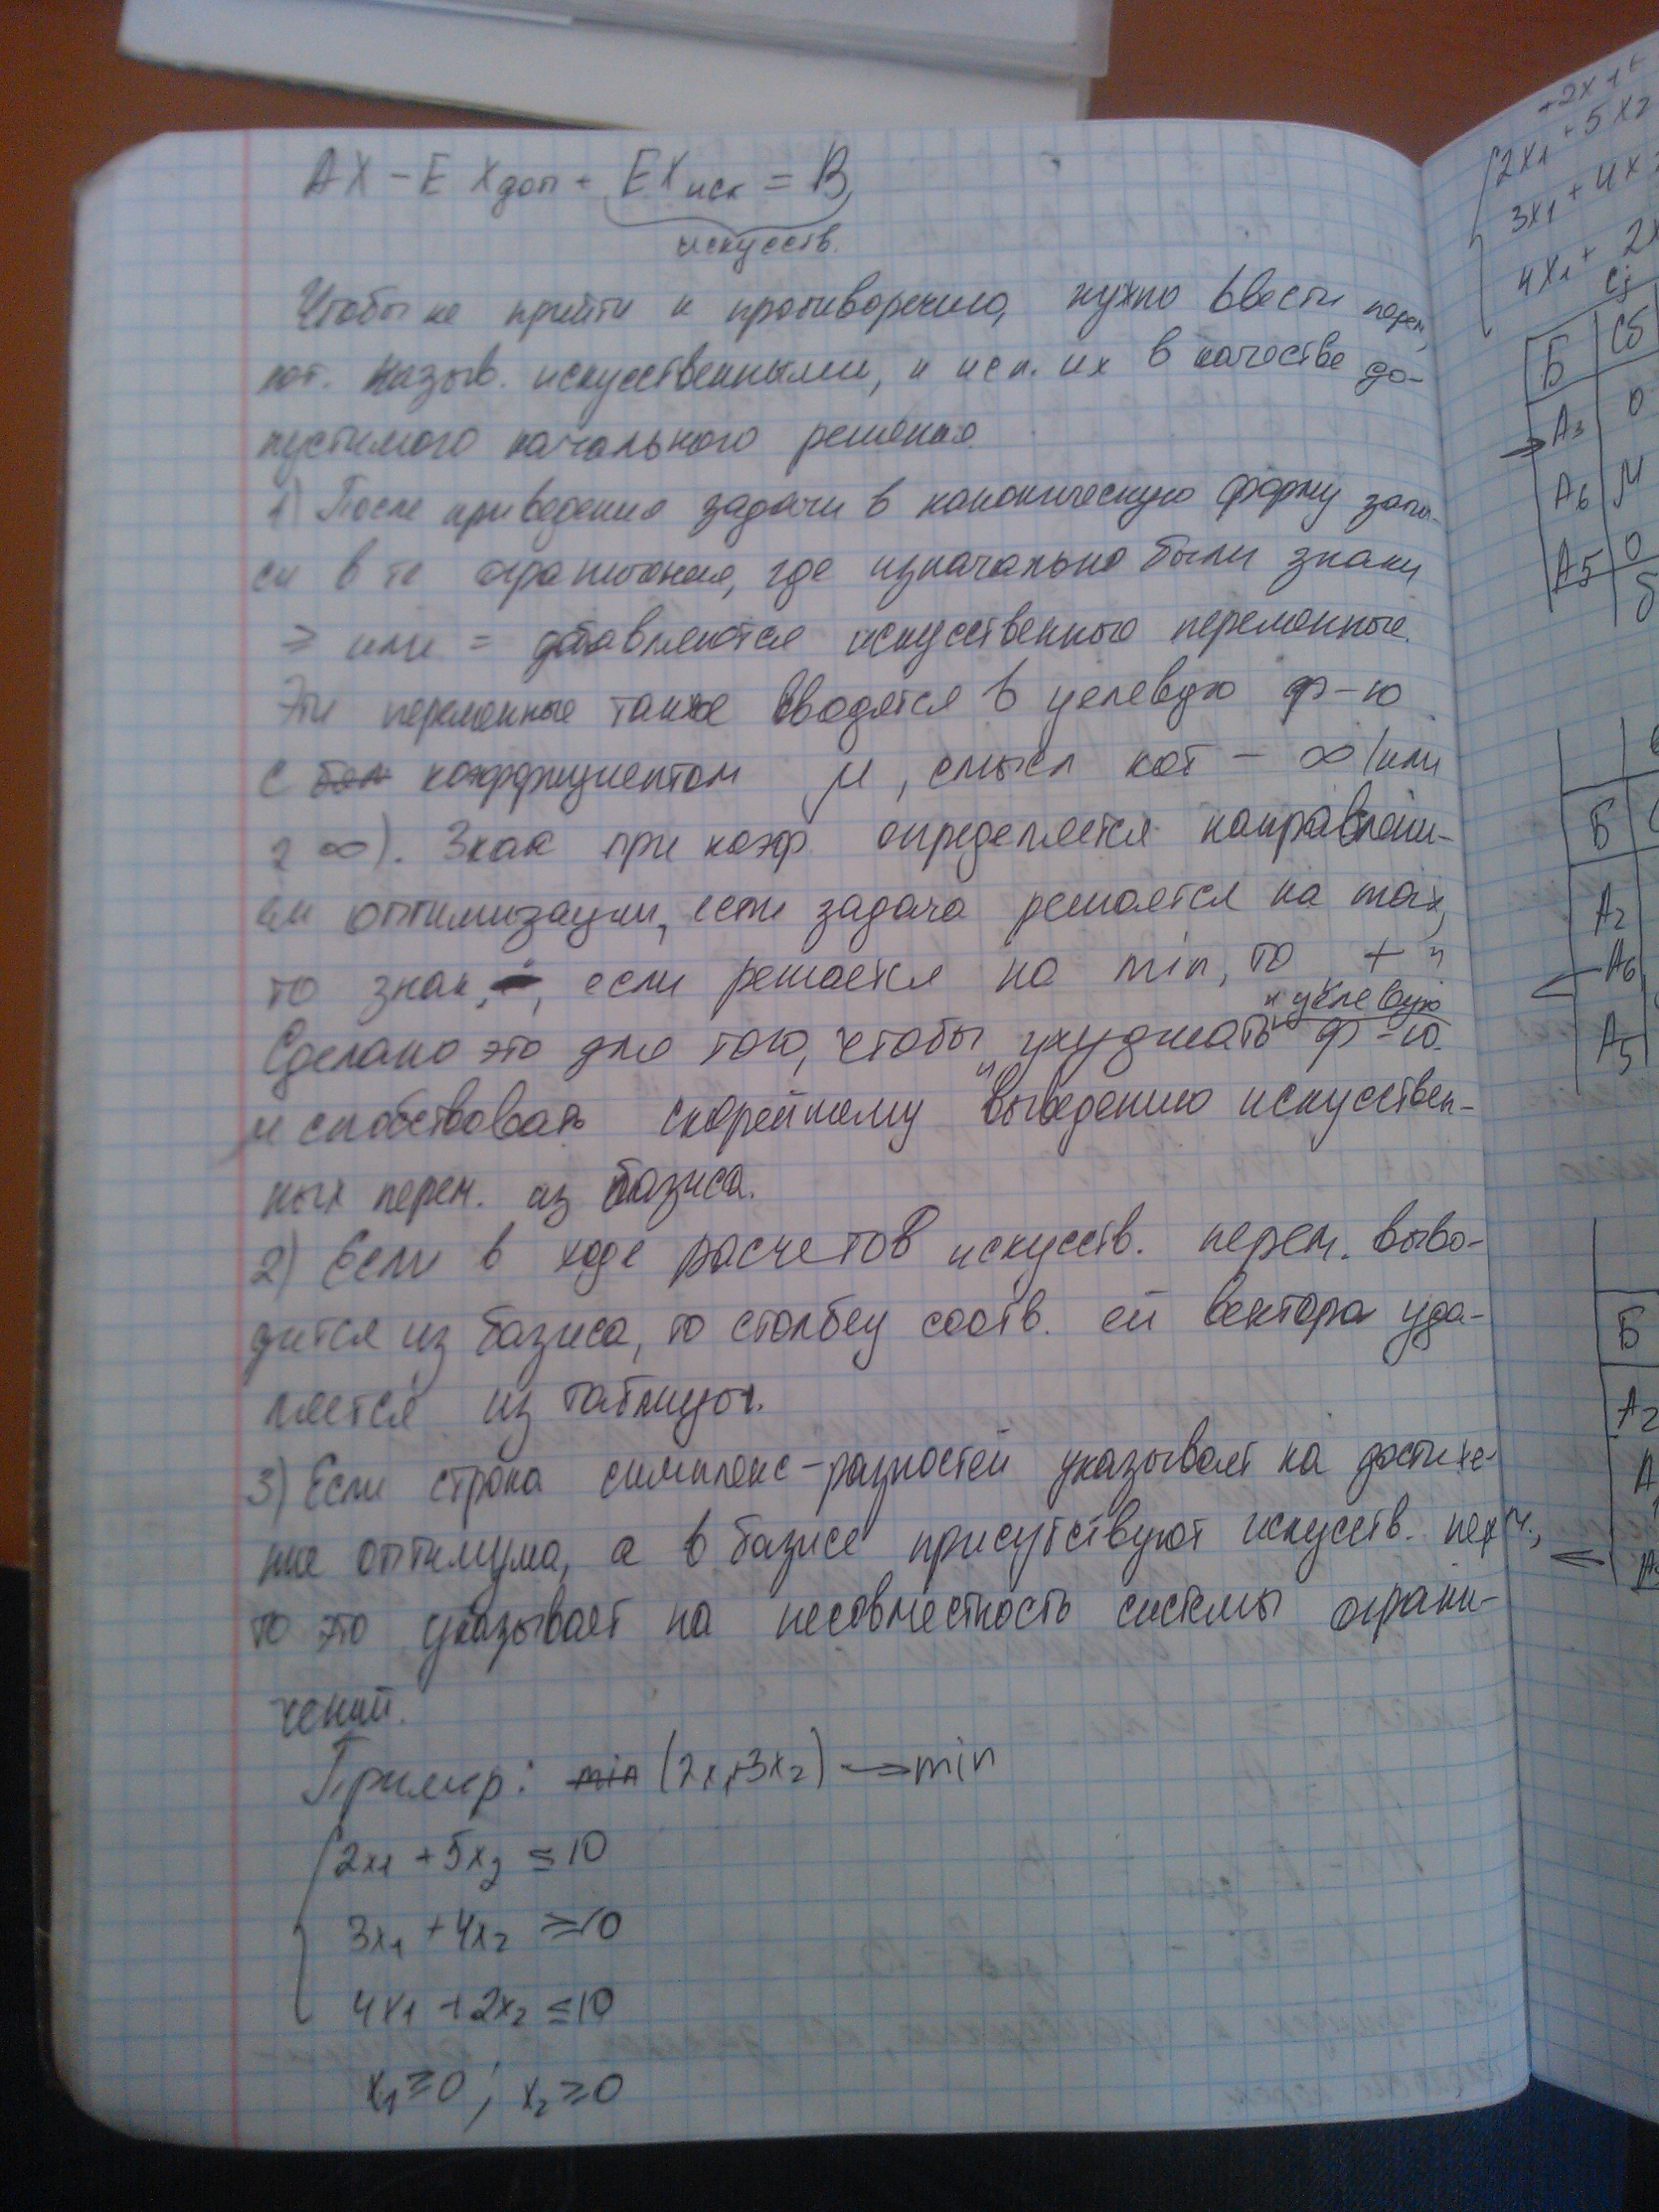 AX - E Xдоп + EXиск = B
искусств.
Чтобы не прийти к противоречию, нужно ввести перем,
кот. назыв. искусственными, и исп. их в качестве до-
пустимого начального решения.
1) После приведения задачи в каноническую форму запи-
си в те ограничения, где изначально были знаки
≥ или = добавляются искусственные переменные.
Эти переменные также вводятся в целевую ф-ю
с коэффициентом μ, смысл кот - ∞ (или
2 ∞). Знак при коэф. определяется направлени-
ем оптимизации, если задача решается на max,
то знак „-“, если решается на min, то + "
целевую
Сделано это для того, чтобы „ухудшать" ф-ю.
и способствовать скорейшему выведению искусствен-
ных перем. из базиса.
2) Если в ходе расчетов искусств. перем. выво-
дится из базиса, то столбец соотв. ей вектора уда-
ляется из таблицы.
3) Если строка симплекс-разностей указывает на достиже-
ние оптимума, а в базисе присутствуют искусств. пер-м.,
то это указывает на несовместность системы ограни-
чений.
Пример: min (2x1+3x2) → min
2x1 + 5x2 ≤ 10
3x1 + 4x2 ≥ 10
4x1 + 2x2 ≤ 10
x1 ≥ 0 ; x2 ≥ 0
+2x1+
2x1 + 5x2
3x1 + 4x2
4x1 + 2x
Cj
Б Сб
A3 0
A6 μ
A5 0
Б
A2
A6
A5
Б
A2
A